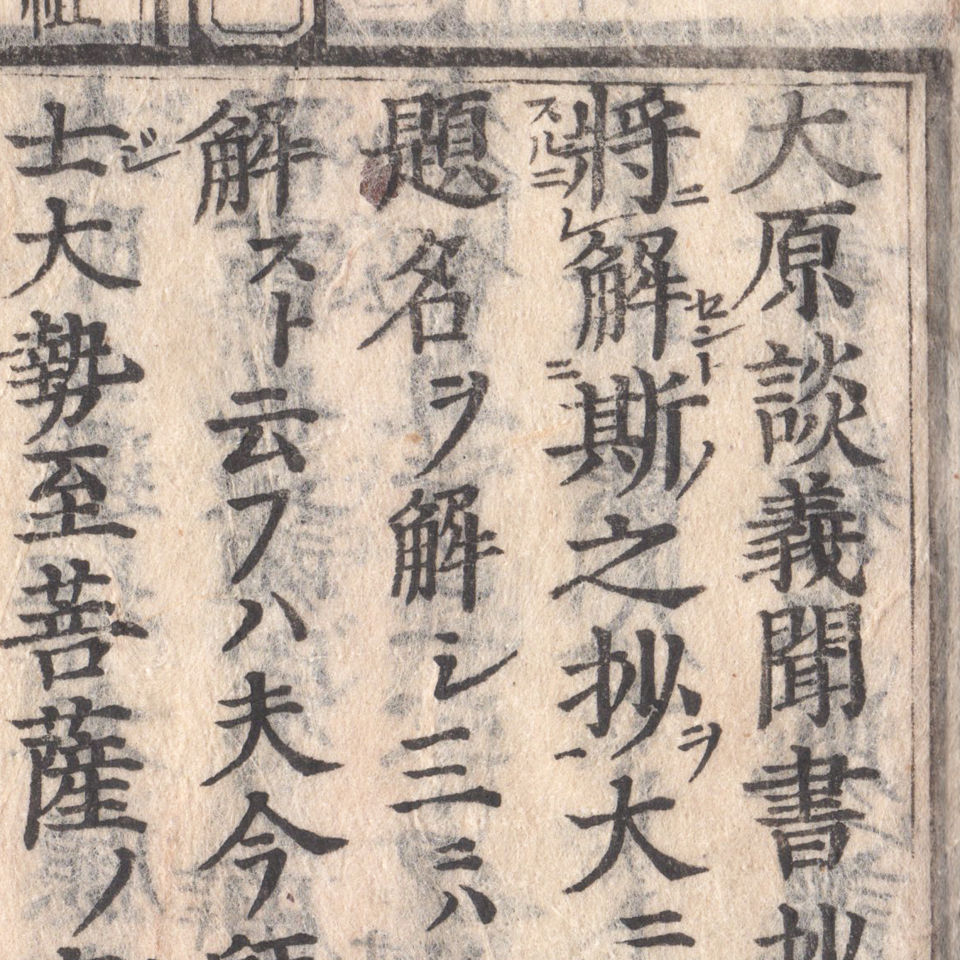 大原談義聞書抄
將ニスルニレ解セント二斯ノ之抄ヲ一大ニ
題名ヲ解シ三ニハ
解スト云フハ夫今
士大勢至菩薩ノ